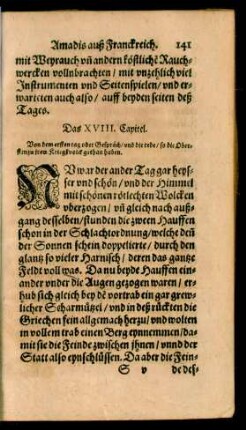 Amadis auß Franckreich. 141
mit Weyrauch vñ andern köstliche Rauch-
wercken vollnbrachten / mit vnzehlich viel
Instrumenten vnd Seitenspielen / vnd er-
warteten auch also / auff beyden seiten deß
Tages.
Das XVIII. Capitel.
Von dem ersten tag oder Gespräch / vnd die rede / so die Ober-
sten zu jren Kriegßvolck gethan haben.
NV war der ander Tag gar heys-
ser vnd schön / vnd der Himmel
mit schönen rötlechten Wolcken
vberzogen / vñ gleich nach auß-
gang desselben / stunden die zween Hauffen
schon in der Schlachtordnung / welche deñ
der Sonnen schein doppelierte / durch den
glantz so vieler Harnisch / deren das gantze
Feldt voll was. Da nu beyde Hauffen ein-
ander vnder die Augen gezogen waren / er-
hub sich gleich bey dē vortrab ein gar grew-
licher Scharmützel / vnd in deß rückten die
Griechen fein allgemach herzu / vnd wolten
in vollem trab einen Berg eynnemmen / da-
mit sie die Feinde zwischen jhnen / vnnd der
Statt also eynschlüssen. Da aber die Fein-
S v de des-